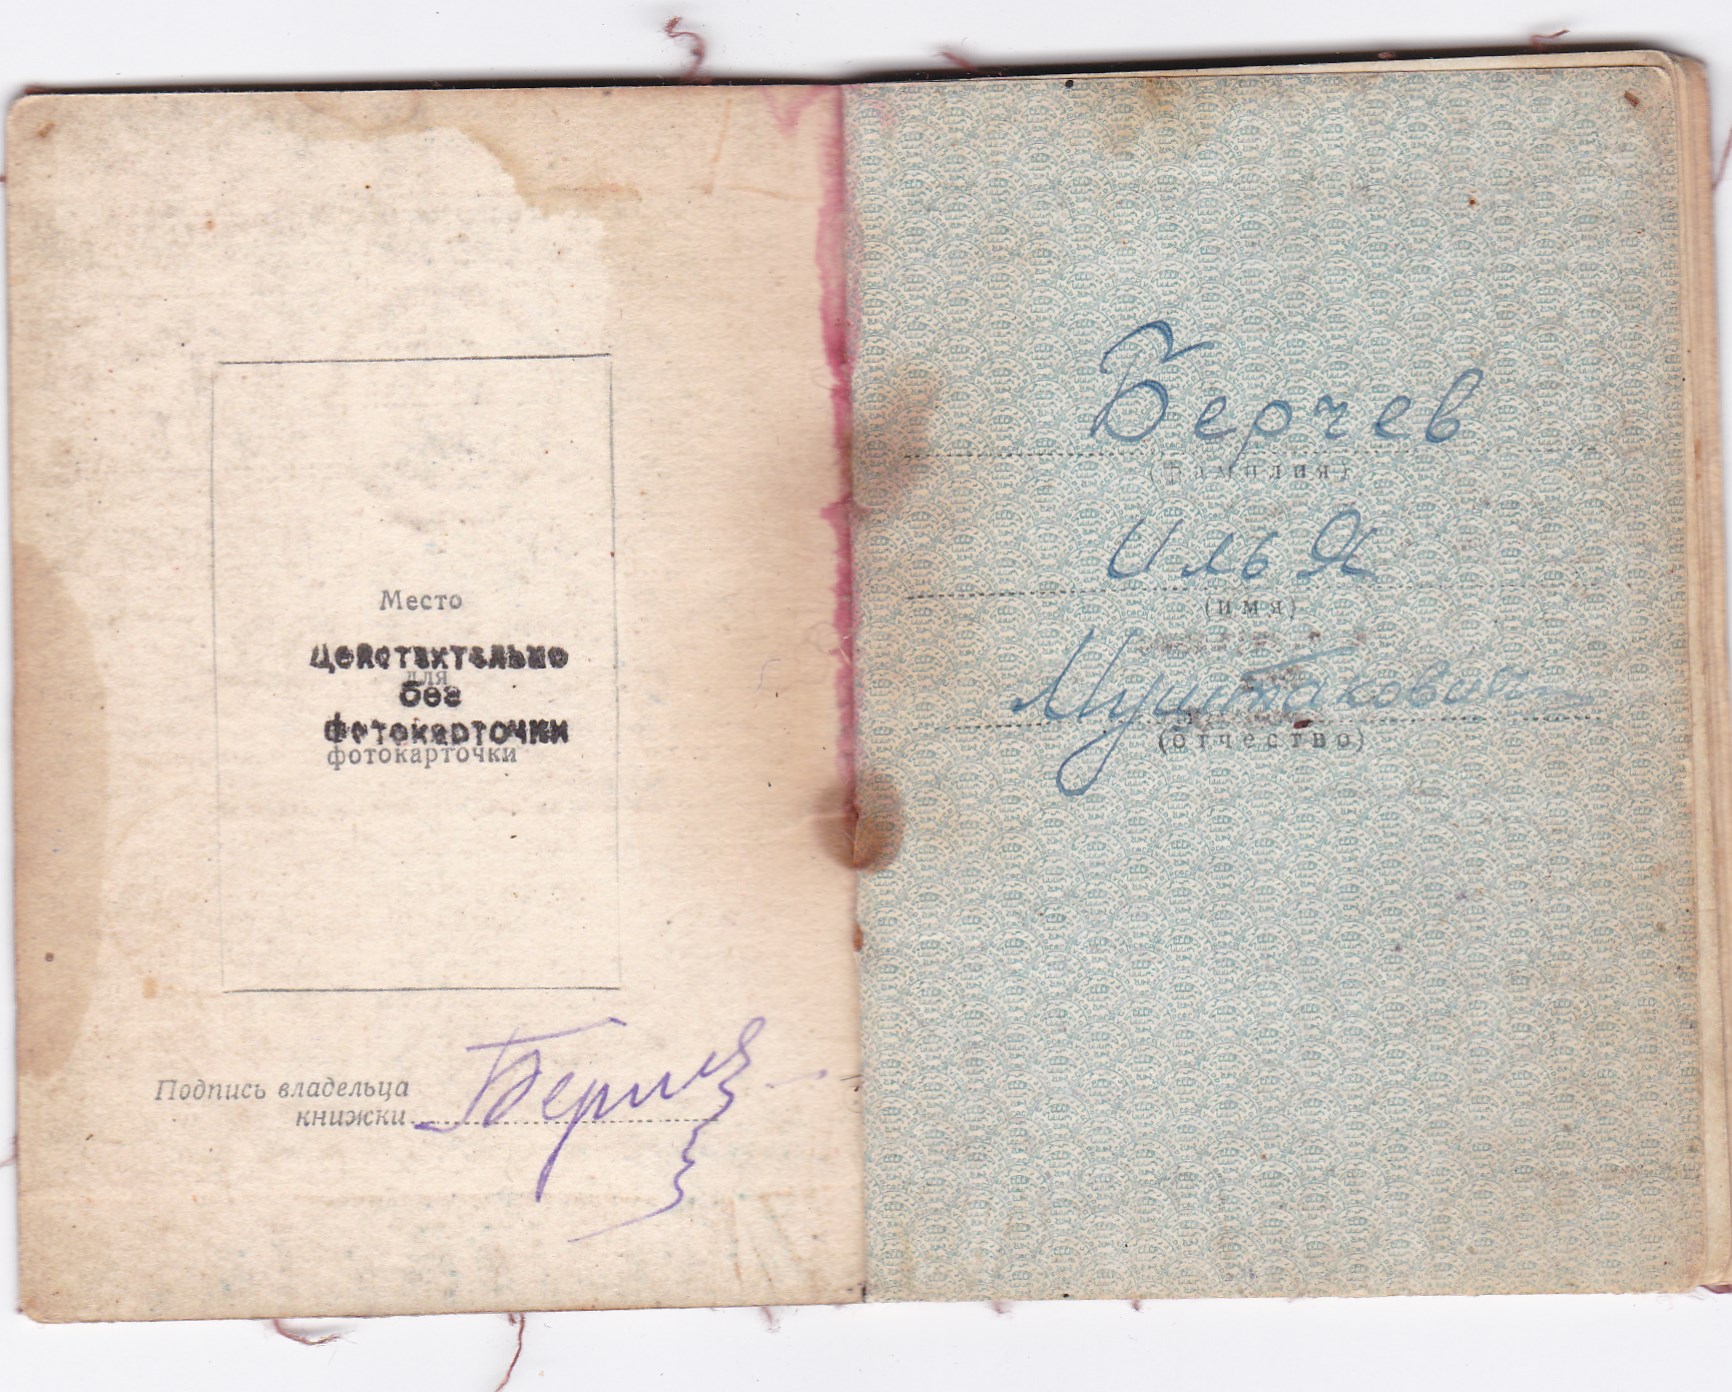 Место
Действительно
для
без
фотокарточки
фотокарточки
Подпись владельца
книжки
Берчев
Илья
(имя)
Муштакович
(отчество)
(фамилия)